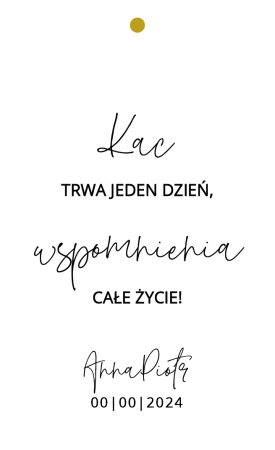 Kac
TRWA JEDEN DZIEŃ,
wspomnienia
CAŁE ŻYCIE!
AnnaPiotr
00|00|2024